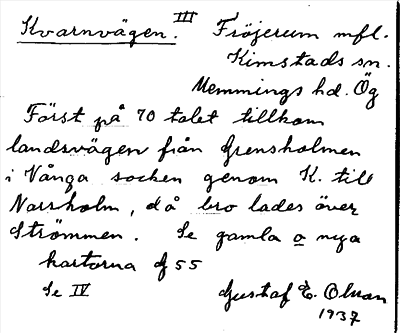 Kvarnvägen. III Fröjerum mfl.
Kimstads sn.
Memmings hd. Ög
Först på 70 talet tillkom
landsvägen från Grensholmen
i Vånga socken genom K. till
Norrsholm, då bro lades över
Strömmen. Se gamla o nya
kartorna f 55
Se IV Gustaf E. Olsson
1937